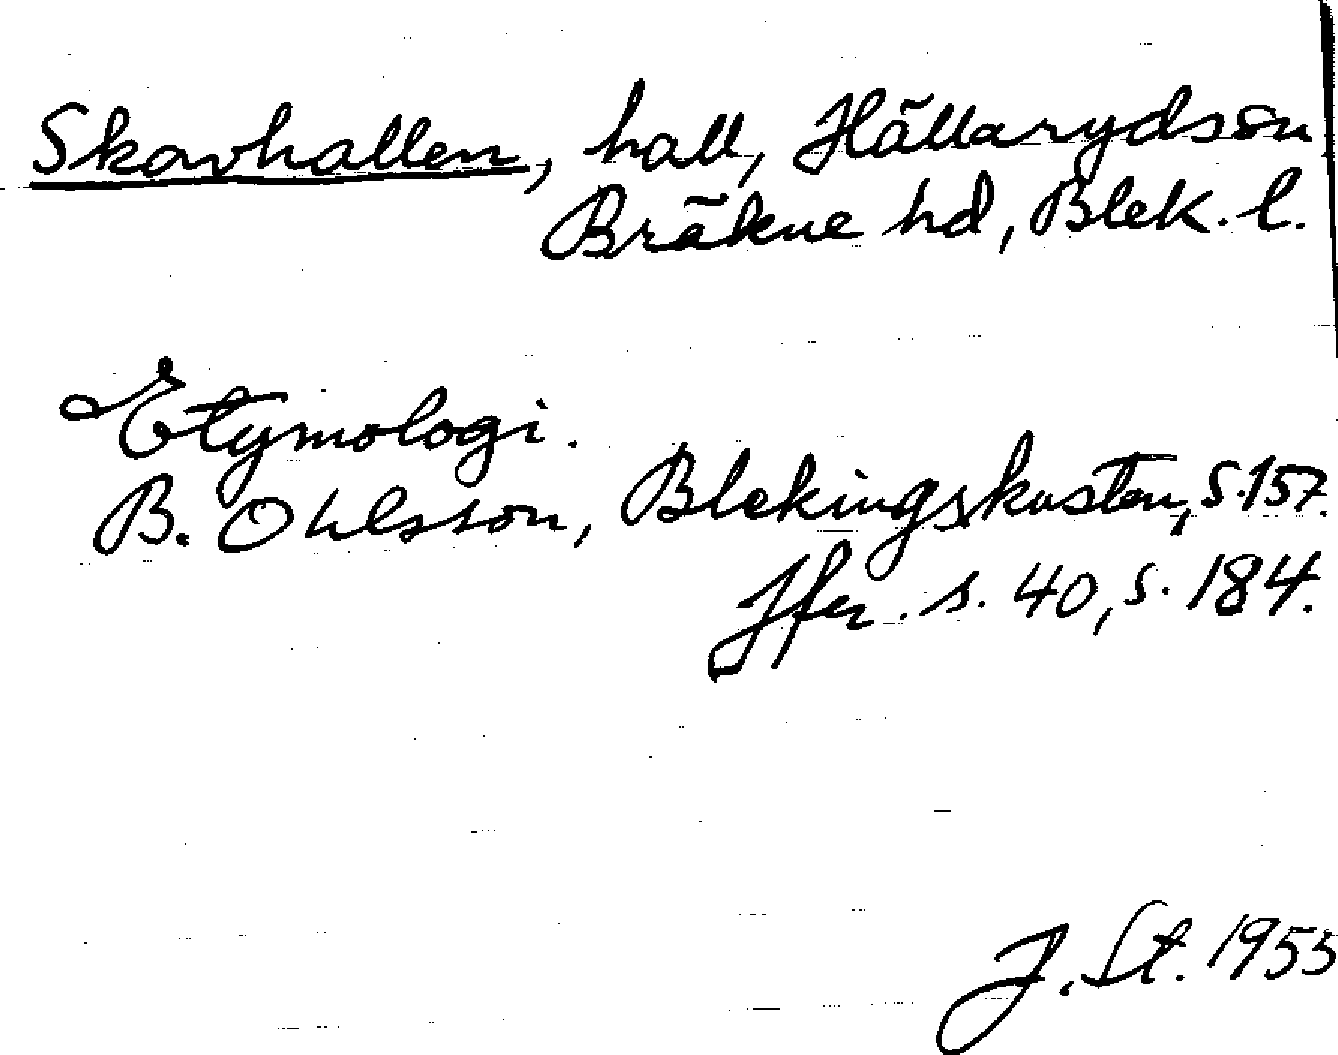 Skavhallen, hall, Hällaryds sn
Bräkne hd, Blek. l.
Etymologi.
B. Ohlsson, Blekingskusten, s. 157.
Jfr. s. 40, s. 184.
J. St. 1955